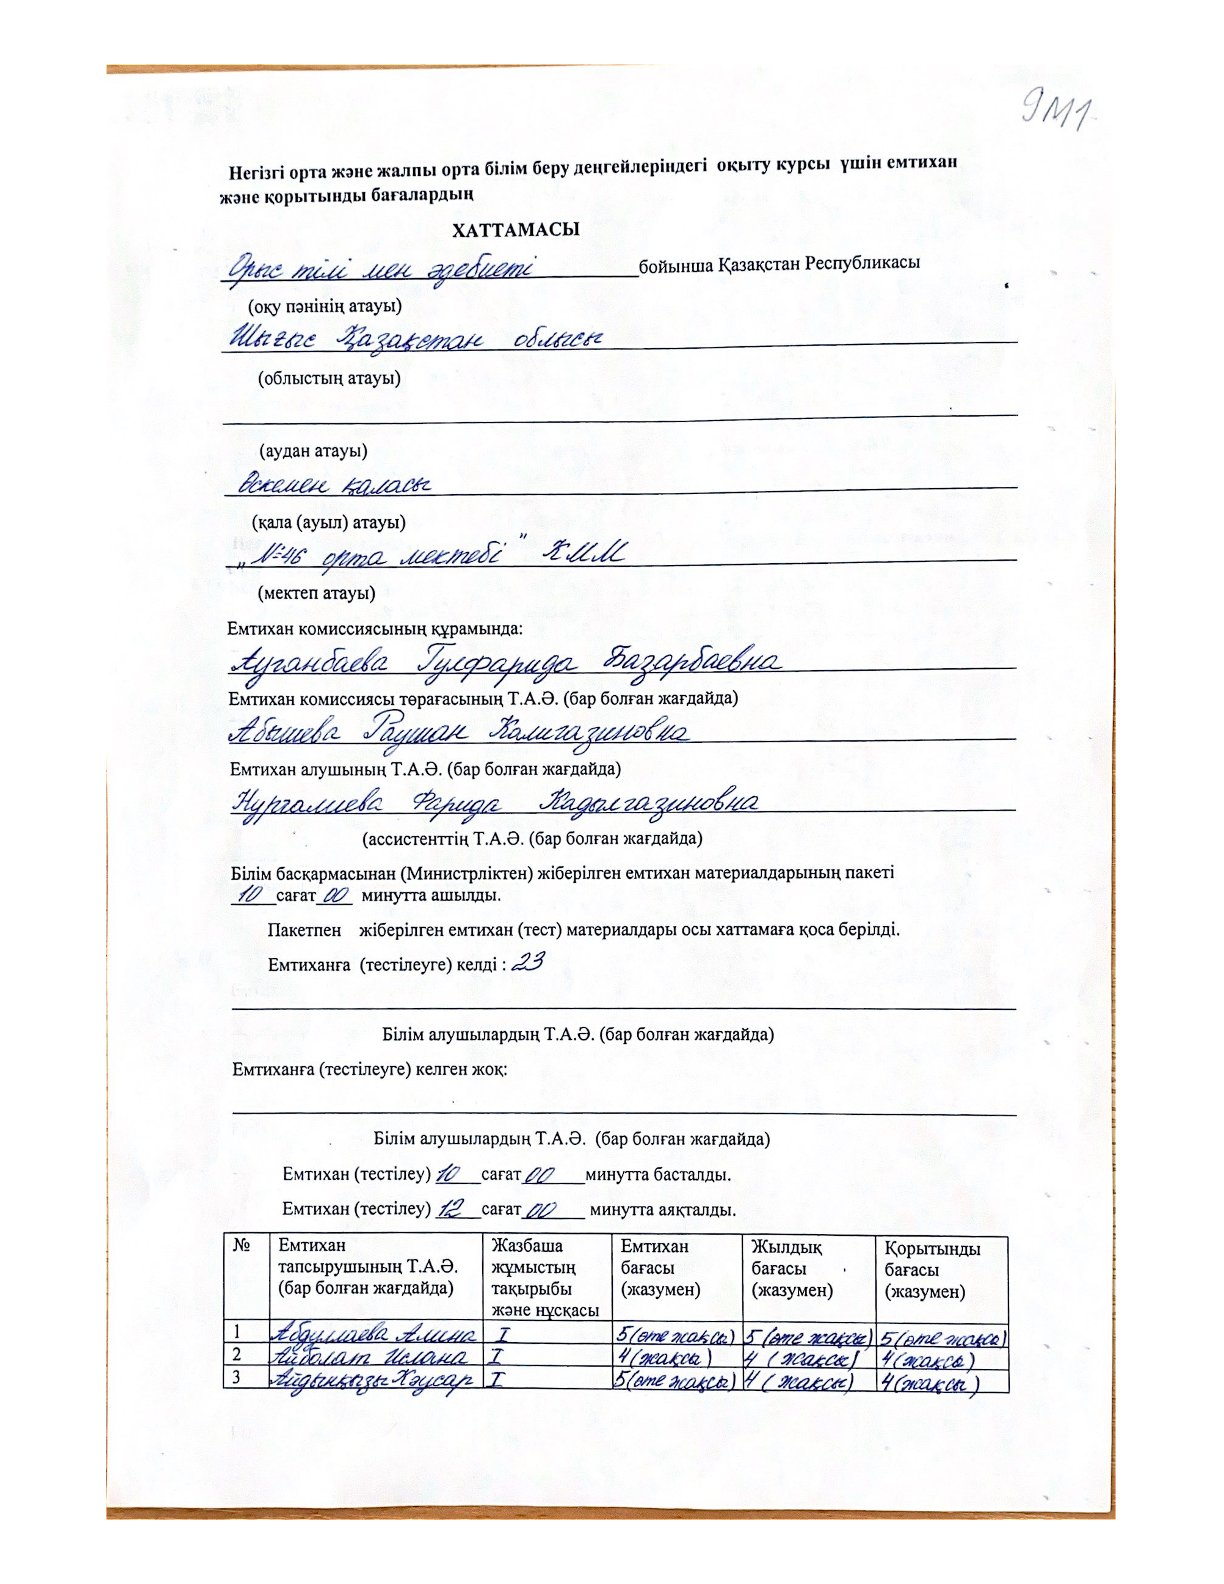 9М1
Негізгі орта және жалпы орта білім беру деңгейлеріндегі оқыту курсы үшін емтихан
және қорытынды бағалардың
ХАТТАМАСЫ
Орыс тілі мен әдебиеті бойынша Қазақстан Республикасы
(оқу пәнінің атауы)
Шығыс Қазақстан облысы
(облыстың атауы)
(аудан атауы)
Өскемен қаласы
(қала (ауыл) атауы)
„№46 орта мектебі" КММ
(мектеп атауы)
Емтихан комиссиясының құрамында:
Ауганбаева Гулфарида Базарбаевна
Емтихан комиссиясы төрағасының Т.А.Ә. (бар болған жағдайда)
Абышева Раушан Калигазиновна
Емтихан алушының Т.А.Ә. (бар болған жағдайда)
Нургалиева Фарида Кадылгазиновна
(ассистенттің Т.А.Ә. (бар болған жағдайда)
Білім басқармасынан (Министрліктен) жіберілген емтихан материалдарының пакеті
10 сағат 00 минутта ашылды.
Пакетпен жіберілген емтихан (тест) материалдары осы хаттамаға қоса берілді.
Емтиханға (тестілеуге) келді : 23
Білім алушылардың Т.А.Ә. (бар болған жағдайда)
Емтиханға (тестілеуге) келген жоқ:
Білім алушылардың Т.А.Ә. (бар болған жағдайда)
Емтихан (тестілеу) 10 сағат 00 минутта басталды.
Емтихан (тестілеу) 12 сағат 00 минутта аяқталды.
№ Емтихан тапсырушының Т.А.Ә. (бар болған жағдайда) Жазбаша жұмыстың тақырыбы және нұсқасы Емтихан бағасы (жазумен) Жылдық бағасы (жазумен) Қорытынды бағасы (жазумен)
1 Абдуллаева Амина I 5 (өте жақсы) 5 (өте жақсы) 5 (өте жақсы)
2 АйболатИслана I 4 (жақсы) 4 (жақсы) 4 (жақсы)
3 Айдынқызы Кәусар I 5 (өте жақсы) 4 (жақсы) 4 (жақсы)